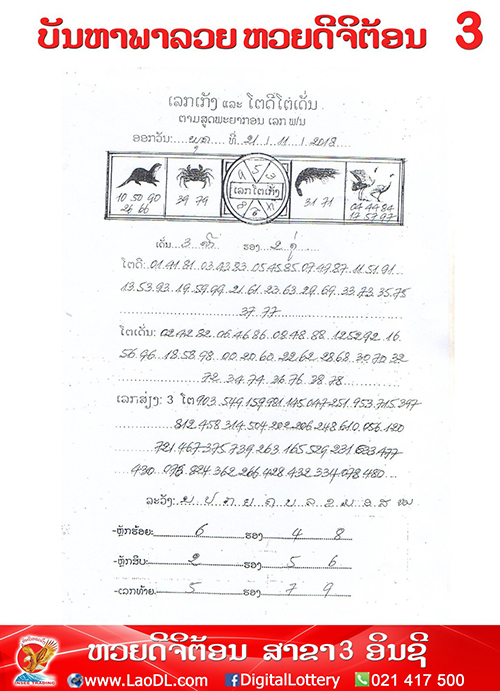 ບັນຫາພາລວຍ ຫວຍດີຈິຕ້ອນ 3
ເລກເກັງ ແລະ ໂຕດີໂຕເດັ່ນ
ຕາມສູດພະຍາກອນ ເລກ ຟ/ນ
ອອກວັນ: ພຸດ ທີ່ 21 / 11 / 2018
ເລກໂຕເກັງ
10 50 90
26 66
39 79
31 71
04 44 84
17 57 97
ເດັ່ນ 3 ຄີ່ ຮອງ 2 ຄູ່
ໂຕດີ: 01.41.81 03.43.83 05.45.85 07.47.87 11.51.91
13.53.93 19.59.99 21.61 23.63 29.69 33.73 35.75
37 77
ໂຕເດັ່ນ: 02.42.82 06.46.86 08.48.88 12.52.92 16
56.96 18.58.98 00.20.60 22.62 28.68 30.70 32
72 34.74 36.76 38.78
ເລກສ່ຽງ: 3 ໂຕ 903.549.159.981.145.047.251.953.715.397
812.458.314.504.202.206.248.610.056.120
721.467.375.739.263.165.529.231.477
930 076 824 362 266 428 432 334 078 480
ລະວັງ:
-ຫຼັກຮ້ອຍ: 6 ຮອງ 4 8
-ຫຼັກສິບ: 2 ຮອງ 5 6
-ເລກທ້າຍ: 5 ຮອງ 7 9
ຫວຍດີຈິຕ້ອນ ສາຂາ 3 ອິນຊີ
www.LaoDL.com DigitalLottery 021 417 500